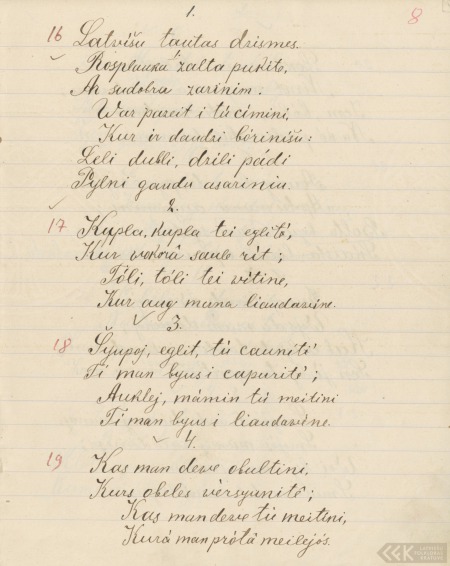 1.
8
16 Latvišu tautas dzismes.
Rosplauka zalta pukite,
Ah sudobra zarinim:
War pazeit i tú cimini,
Kur ir daudzi bérinišu:
Zeli dubli, dzili pádi
Pylni gaudu asariniu.
2.
17 Kupla, kupla tei eglité,
Kur wokorâ saule rit;
Tóli, tóli tei witine,
Kur aug muna liaudawéne.
3.
18 Šyupoj, eglit, tú caunítí
Tí man byus i capurité;
Auklej, mámin tú meitini
Tí man byus i liaudawéne.
4.
19 Kas man dewe obultini,
Kurs obeles wèrsyunité;
Kas man dewe tú meitini,
Kurá man prótá meilejós.